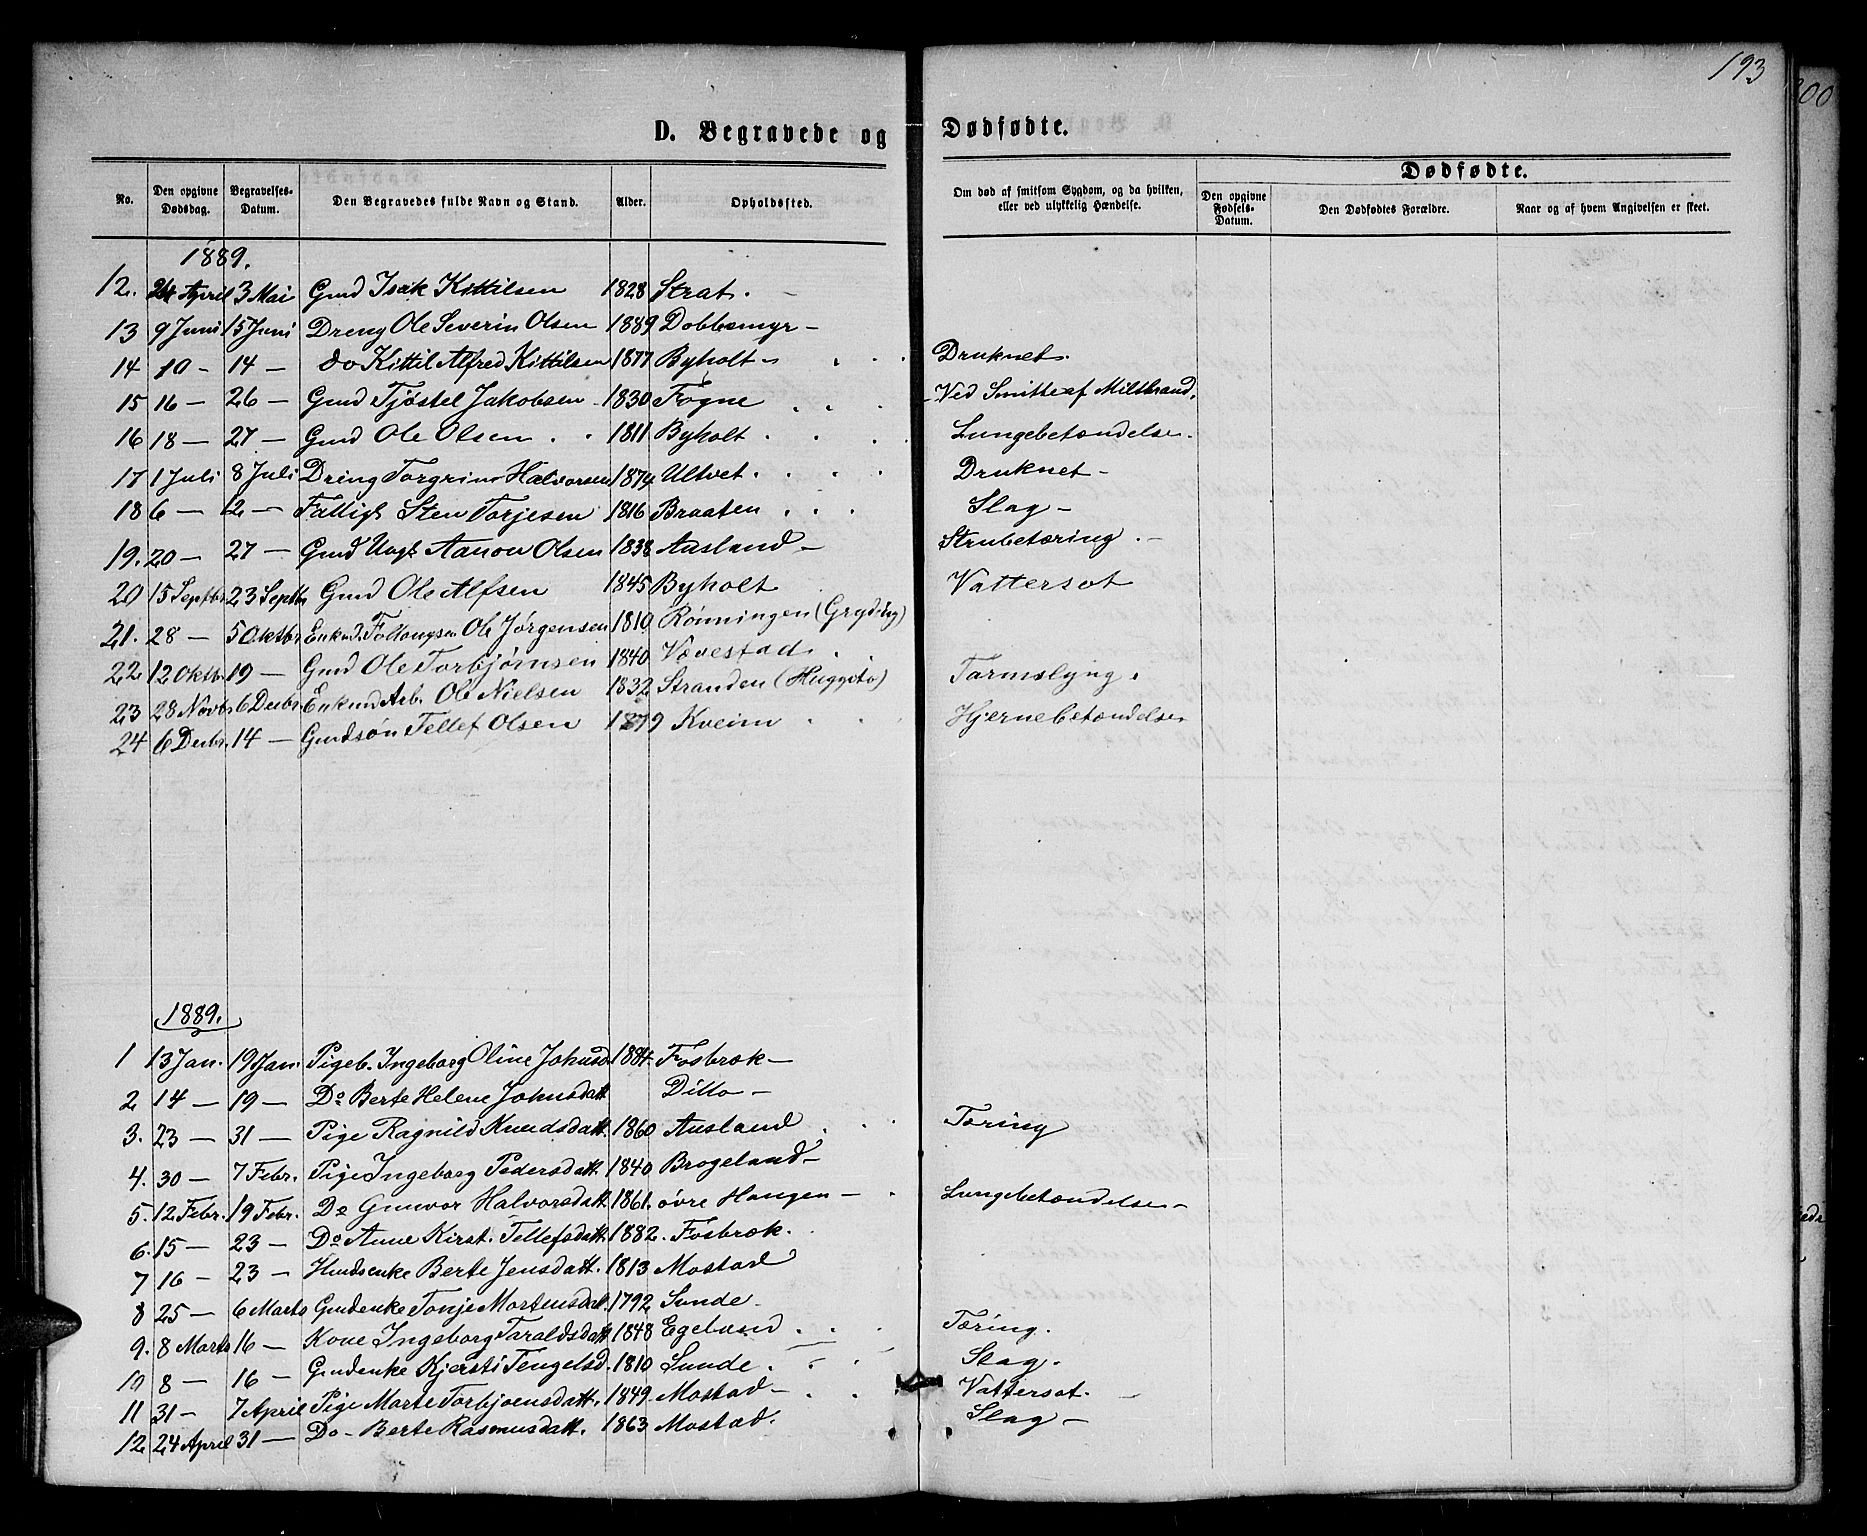 193
100
D. Begravede og Dødfødte.
No. Den opgivne Dødsdag. Begravelses-Datum. Den Begravedes fulde Navn og Stand. Alder. Opholdssted. Om død af smitsom Sygdom, og da hvilken, eller ved ulykkelig Hændelse. Dødfødte. Den opgivne Fødsels-Datum. Den Dødfødtes Forældre. Naar og af hvem Angivelsen er skeet.
1889.
12. 24 April 3 Mai Gmd Isak Kittilsen 1828 Strat.
13 9 Juni 15 Juni Dreng Ole Severin Olsen 1889 Dobbemyr
14 10 - 14 - do Kittil Alfred Kittilsen 1877 Byholt Druknet.
15 16 - 26 - Gmd Tjøstel Jakobsen 1830 Fogne Ved Smitte af Miltbrand.
16 18 - 27 - Gmd Ole Olsen 1811 Byholt Lungebetændelse.
17 1 Juli 8 Juli Dreng Torgrim Halvorsen 1874 Ultvet Druknet
18 6 - 12 - Fattigl Sten Torjesen 1816 Braaten Slag
19. 20 - 27 - Gmd Ungk Aanon Olsen 1838 Ausland Strubetæring
20 15 Septbr 23 Septbr Gmd Ole Alfsen 1845 Byholt Vattersot
21. 28 - 5 Oktbr Enkmd. Ole Jørgensen 1810 Rønningen (Gryting)
22 12 Oktbr 19 - Gmd Ole Torbjørnsen 1840 Vævestad Tarmslyng.
23 28 Novbr 6 Decbr Enkmd Arb. Ole Nielsen 1832 Stranden
24 6 Decbr. 14 - Gmdsøn Tellef Olsen 1879 Kveim Hjernebetændelse
1889.
1 13 Jan. 19 Jan. Pigeb. Ingeborg Oline Johnsd 1884. Fosbræk
2 14 - 19 - Do Berte Helene Johnsdatt Ditto
3. 23 - 31 - Pige Ragnild Knudsdatt. 1860 Ausland Tæring
4. 30 - 7 Febr. Pige Ingeborg Pedersdatt. 1840 Brogeland
5. 12 Febr. 19 Febr. Do Gunvor Halvorsdatt. 1861. øvre Haugen Lungebetændelse
6. 15 - 23 - Do Anne Kirst. Tellefsdatt. 1882. Fosbræk.
7 16 - 23 - Hmdsenke Berte Jensdatt. 1813 Mostad
8 25 - 6 Marts Gmdenke Tonje Mortensdat. 1792 Sunde
9. 8 Marts 16 - Kone Ingeborg Taraldsdatt 1848 Egeland Tæring.
10 8 - 16 - Gmdenke Kjersti Tengelsd. 1810 Sunde. Slag.
11 31 - 7 April Pige Marte Torbjoensdatt. 1849. Mostad Vattersot.
12 24 April 31 - Do - Berte Rasmusdatt. 1863 Mostad. Slag